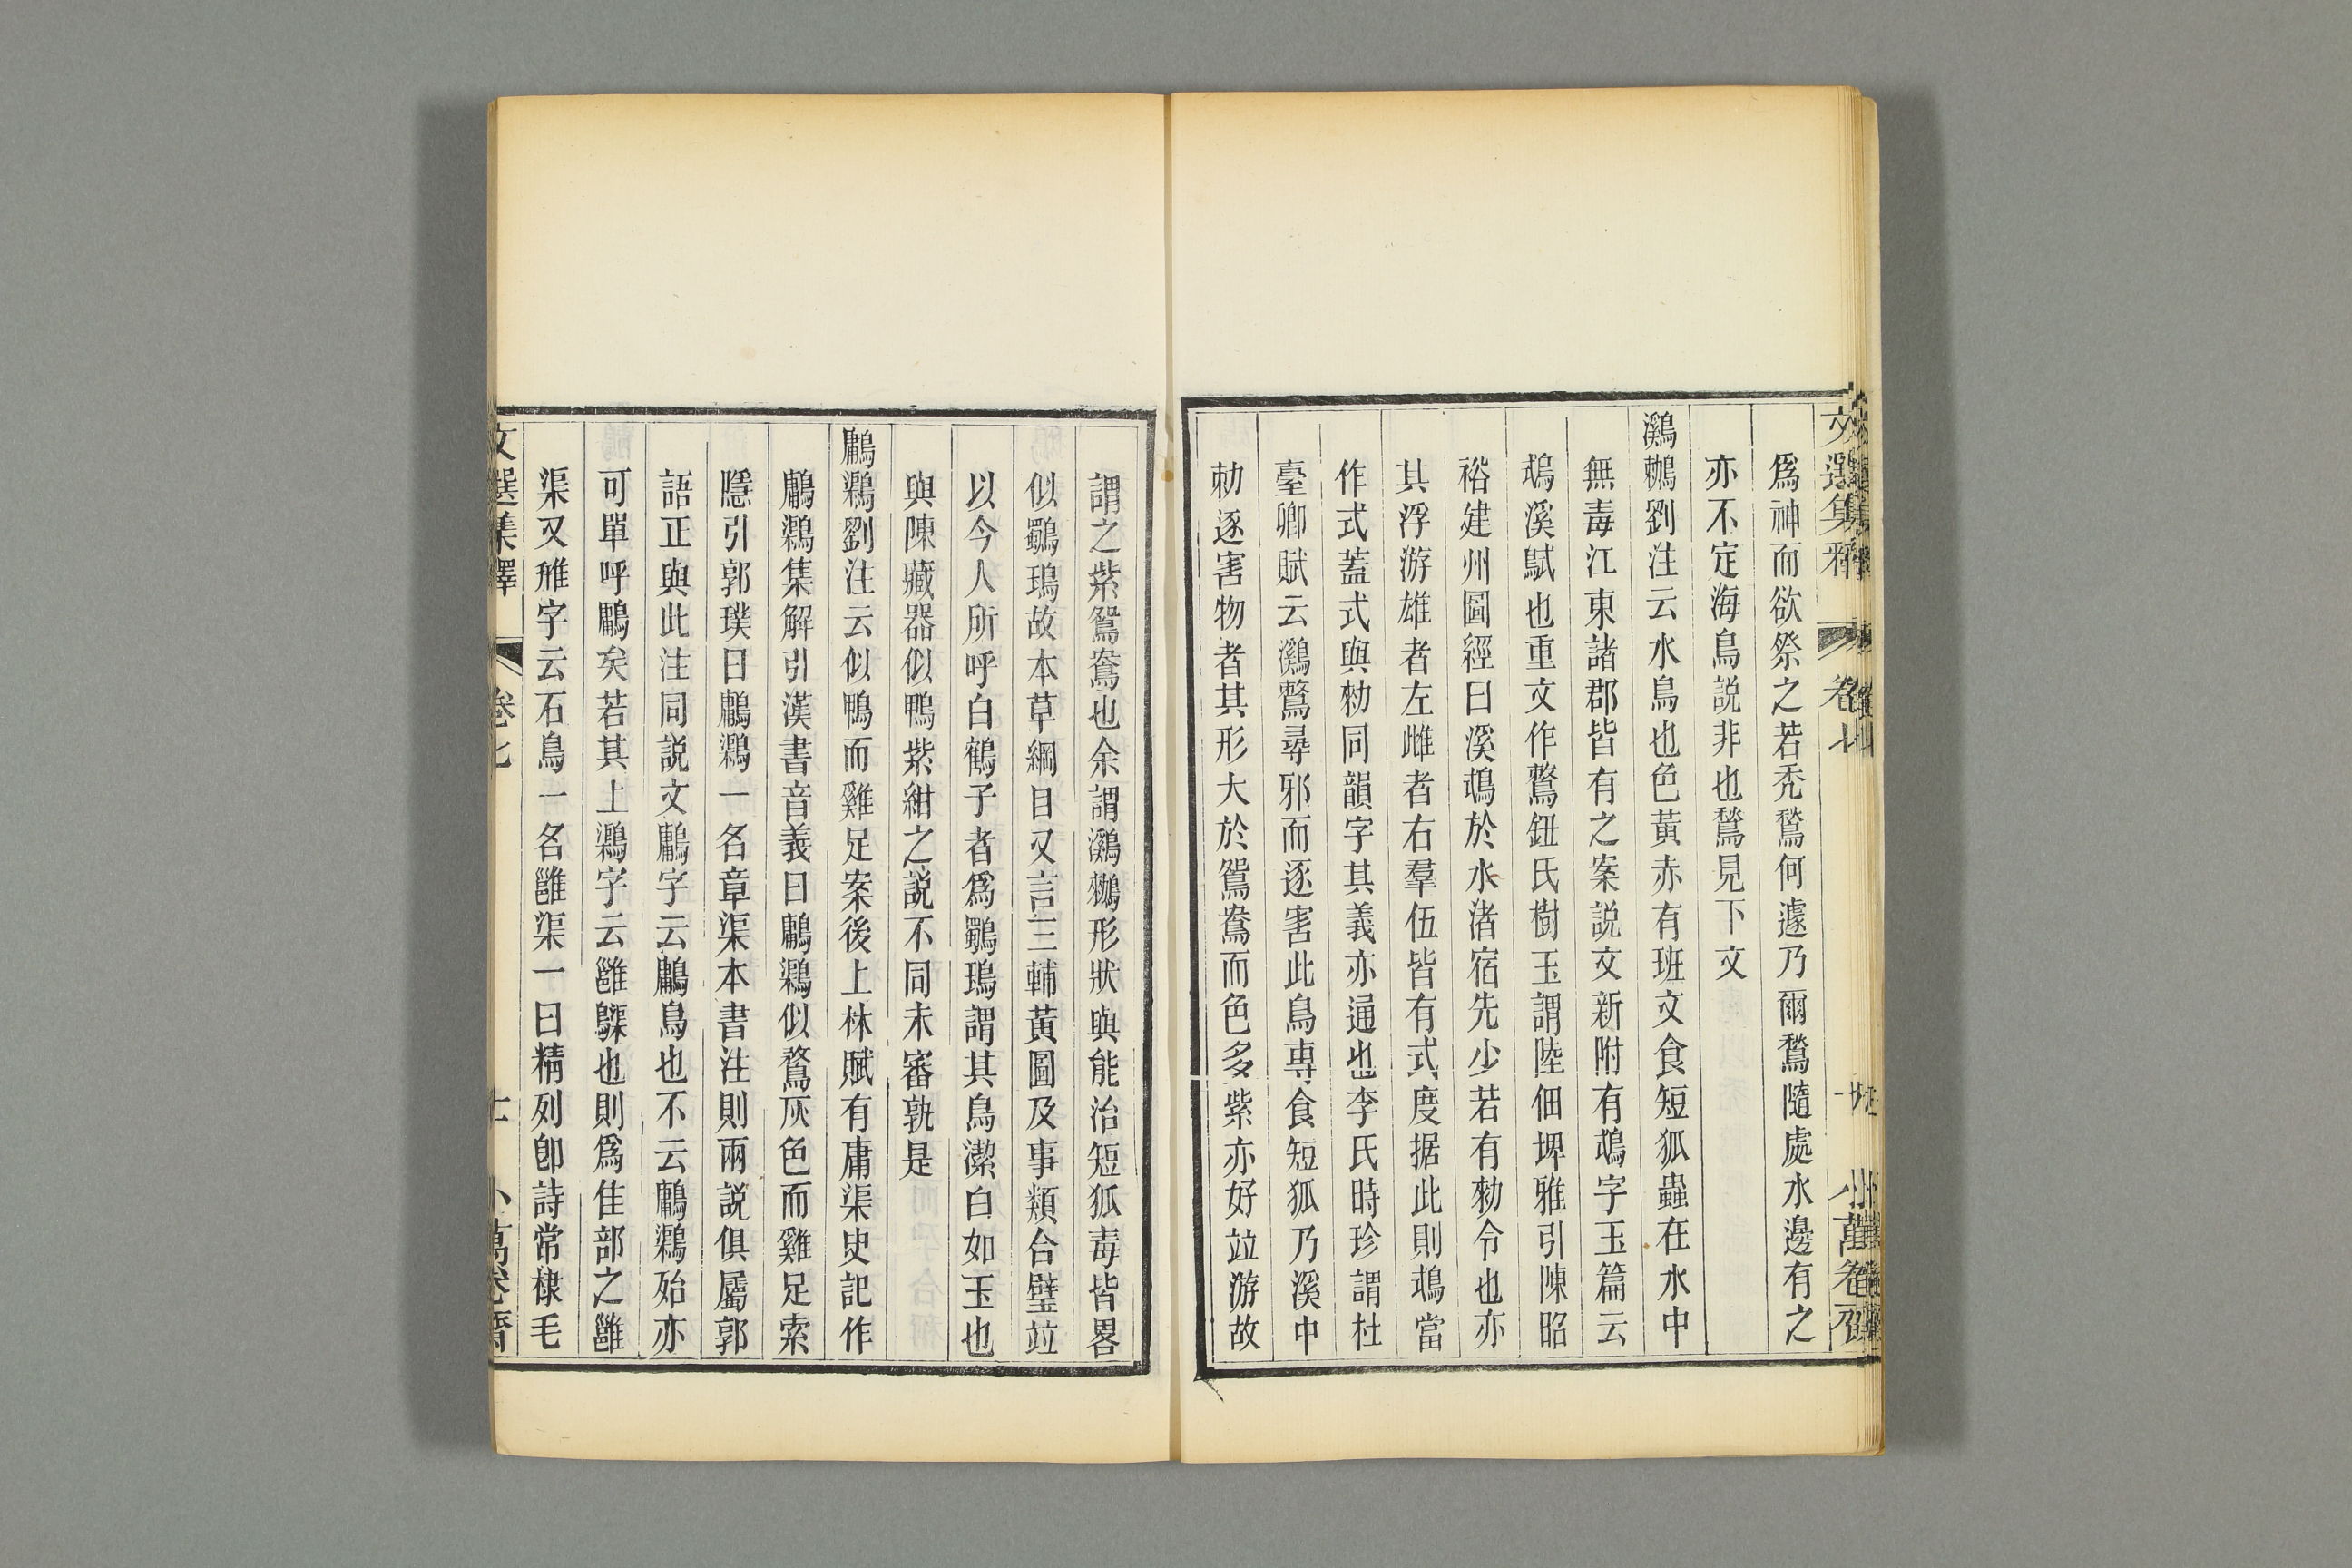 爲神而欲祭之若禿鶖何遽乃爾鶖隨處水邊有之
亦不定海鳥說非也鶖見下文
鸂鷘劉注云水鳥也色黃赤有班文食短狐蟲在水中
無毒江東諸郡皆有之案說文新附有䳵字玉篇云
䳵溪鴏也重文作鷘鈕氏樹玉謂陸佃埤雅引陳昭
裕建州圖經曰溪䳵於水渚宿先少若有勑令也亦
其浮游雄者左雌者右羣伍皆有式度据此則䳵當
作式蓋式與勑同韻字其義亦通也李氏時珍謂杜
臺卿賦云鸂鷘尋邪而逐害此鳥專食短狐乃溪中
勅逐害物者其形大於鴛鴦而色多紫亦好竝游故
謂之紫鴛鴦也余謂鸂鷘形狀與能治短狐毒皆畧
似鸀鳿故本草綱目又言三輔黃圖及事類合璧竝
以今人所呼白鶴子者爲鸀鳿謂其鳥潔白如玉也
與陳藏器似鴨紫紺之說不同未審孰是
鷛鶏劉注云似鴨而雞足案後上林賦有庸渠史記作
鷛鶏集解引漢書音義曰鷛鶏似鶩灰色而雞足索
隱引郭璞曰鷛鶏一名章渠本書注則兩說俱屬郭
語正與此注同說文鷛字云鷛鳥也不云鷛鶏殆亦
可單呼鷛矣若其上鶏字云雝鶏也則爲隹部之雝
渠又雃字云石鳥一名雝渠一曰精列卽詩常棣毛
文選集釋 卷七
小萬卷齋